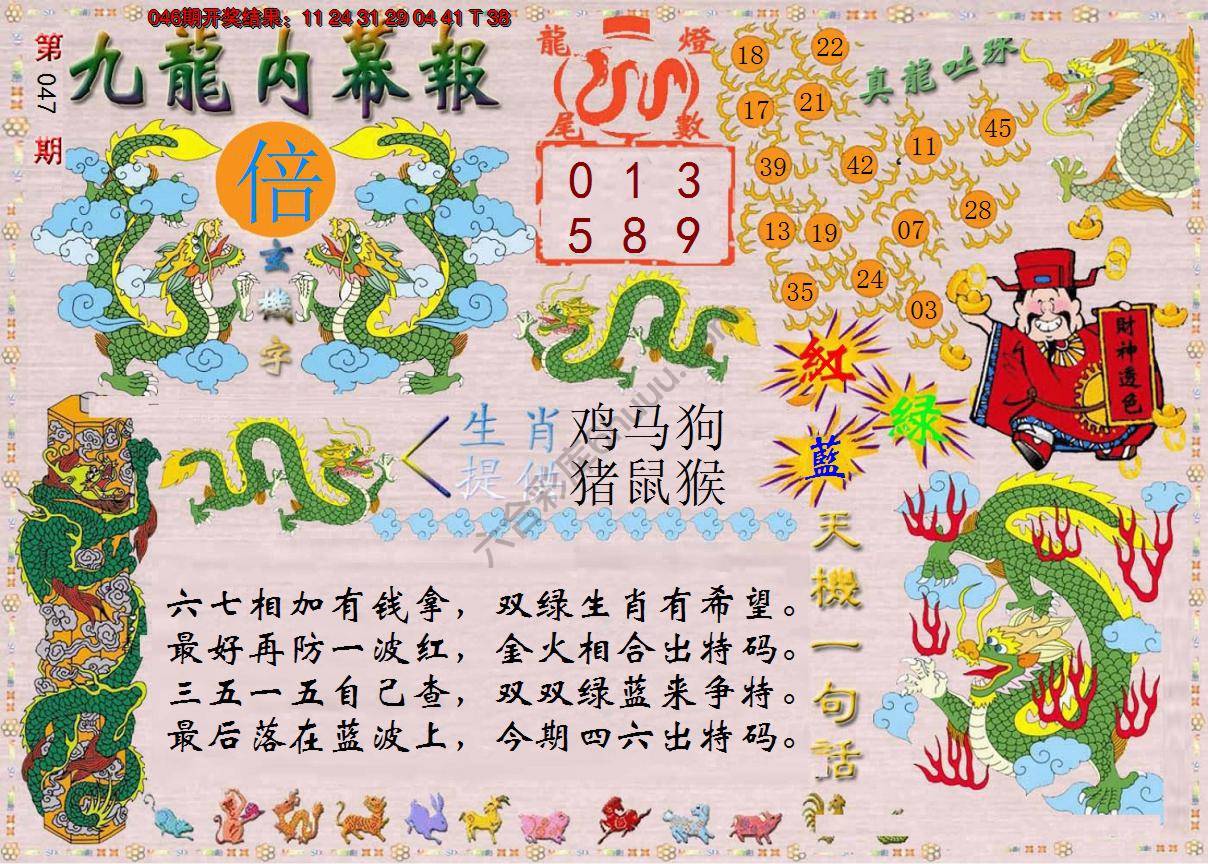 046期开奖结果：11 24 31 29 04 41 T 38
第047期
九龍内幕報
倍
玄機字
龍燈尾數
0 1 3
5 8 9
真龍吐珠
18 22
17 21
39 42 11 45
13 19 07 28
35 24 03
財神透色
紅
綠
藍
生肖 鸡马狗
提供 猪鼠猴
天機一句話
六七相加有钱拿，双绿生肖有希望。
最好再防一波红，金火相合出特码。
三五一五自己查，双双绿蓝来争特。
最后落在蓝波上，今期四六出特码。